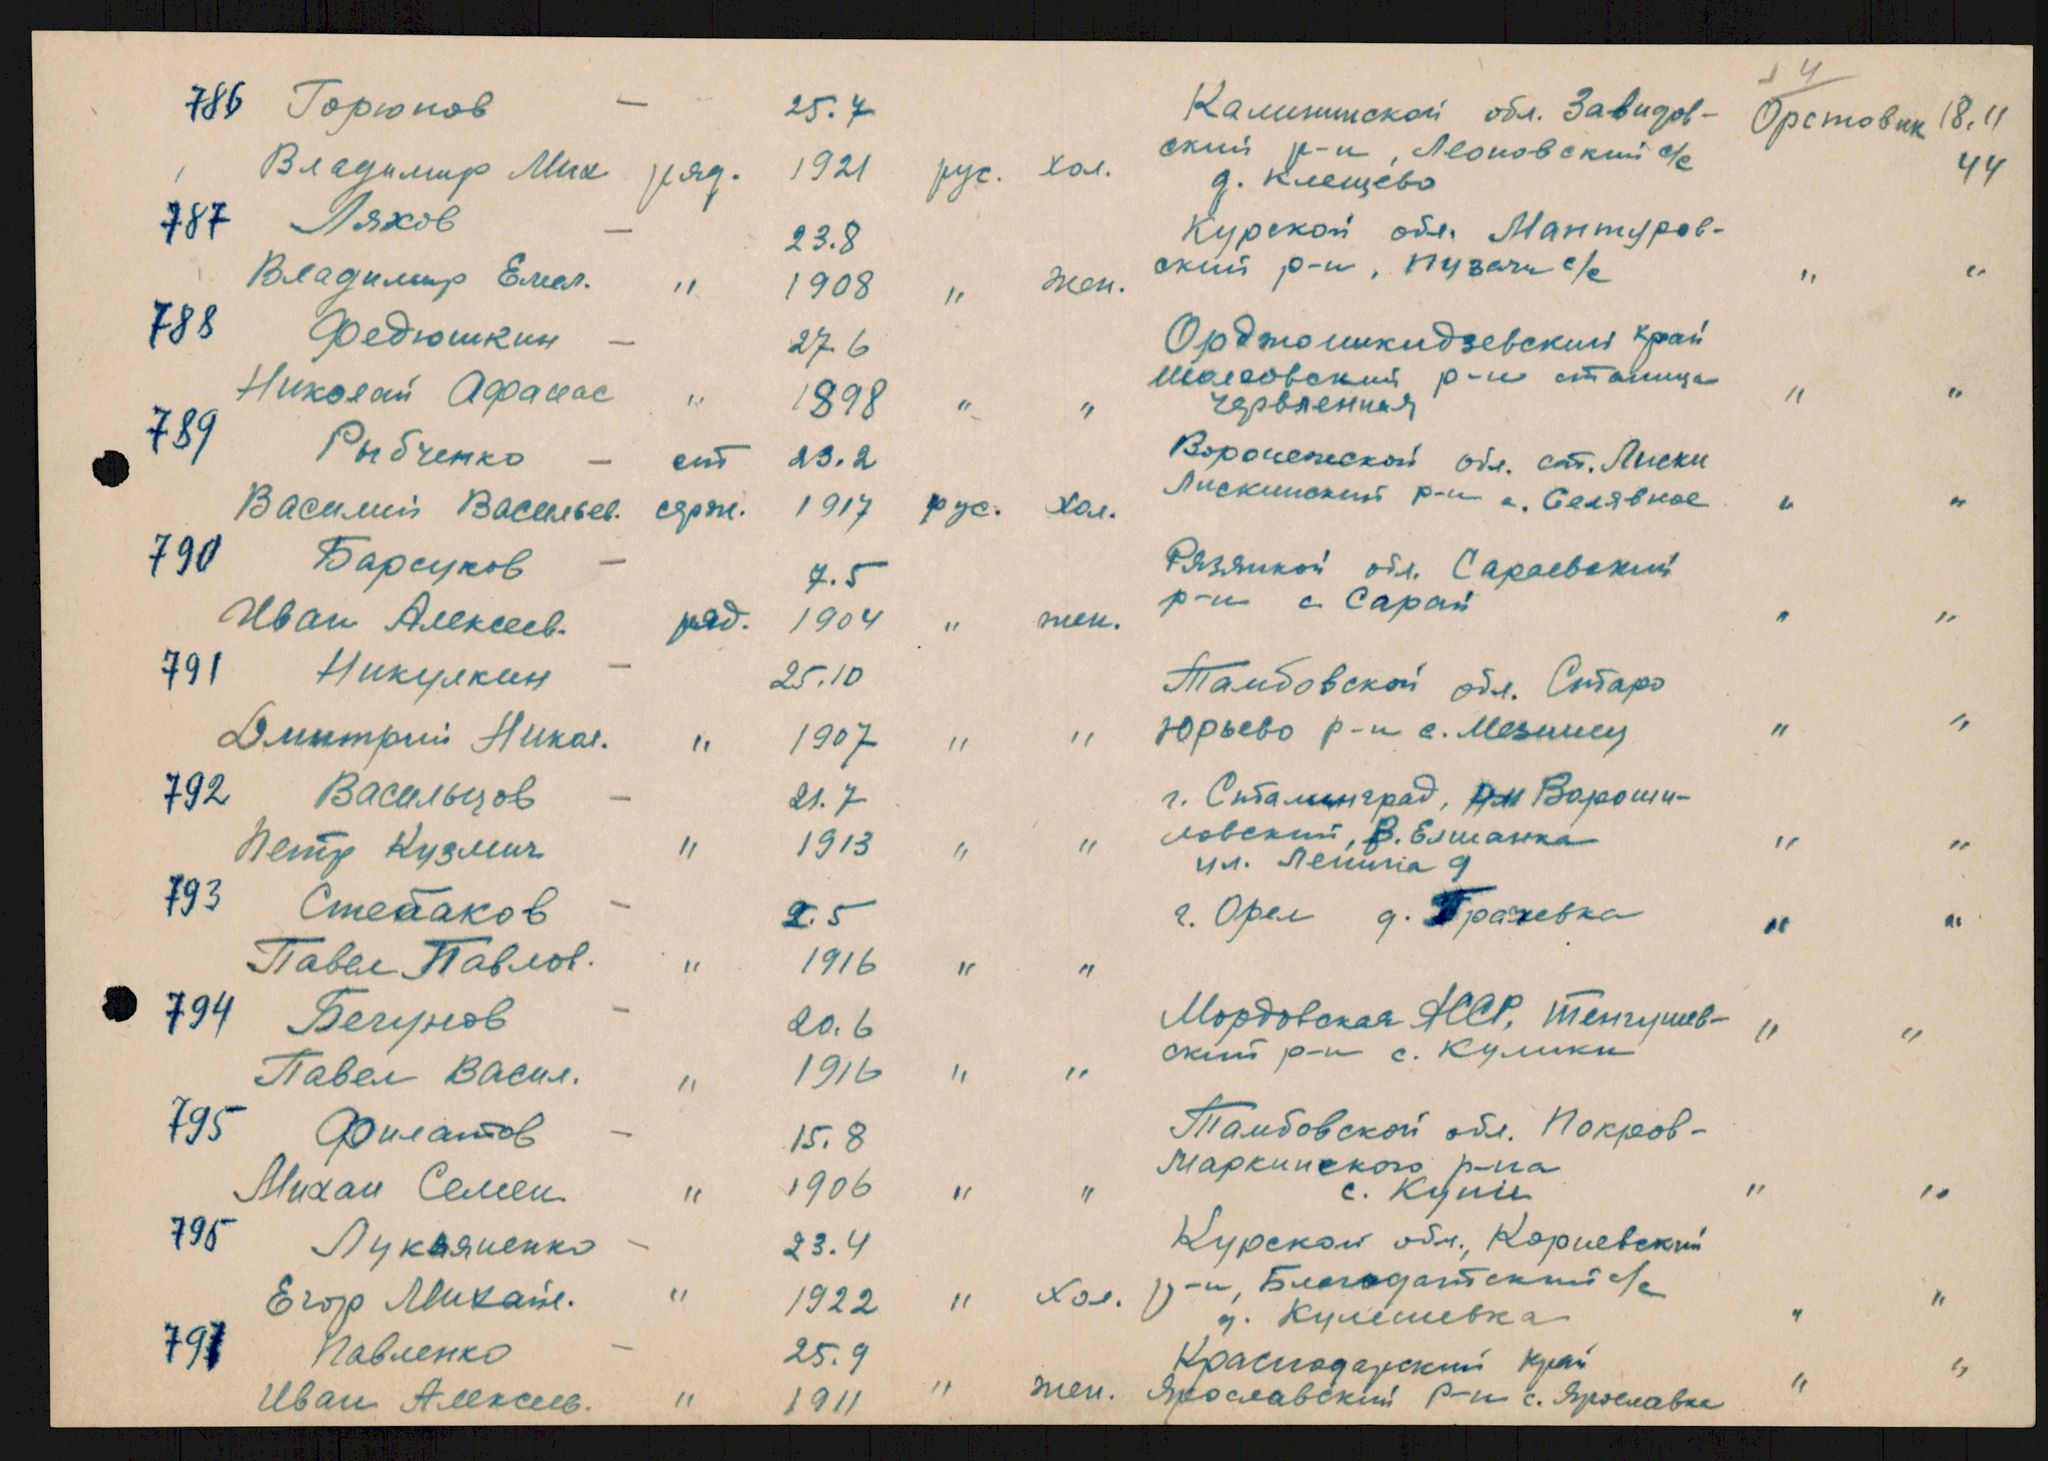 786 Горюнов — 25.7 Калининской обл. Завидов- Орстовик 18.11
Владимир Мих ряд. 1921 рус. хол. ский р-н, Леоновский с/с 44
д. Клещево
787 Ляхов — 23.8 Курской обл. Мантуров-
Владимир Емел. " 1908 " жен. ский р-н, Пузачи с/с " "
788 Федюшкин — 27.6 Орджоникидзевский край
Николай Афанас " 1898 " " р-н станица " "
Червленная
789 Рыбченко — ст 23.2 Воронежской обл. ст. Лиски
Василий Васильев. серж. 1917 рус. хол. Лискинский р-н с. Селявное " "
790 Барсуков — 7.5 Рязанкой обл. Сараевский
Иван Алексеев. ряд. 1904 " жен. р-н с Сараи " "
791 Никулкин — 25.10 Тамбовской обл. Старо
Дмитрий Никол. " 1907 " " Юрьево р-н с. " "
792 Васильцов — 21.7 г. Сталинград, Вороши-
Петр Кузмич " 1913 " " ловский, В. Елшанка " "
ул. Ленина 9
793 Степаков — 2.5 г. Орел д. Грачевка " "
Павел Павлов. " 1916 " "
794 Бегунов — 20.6 Мордовская АССР, Тенгушев- " "
Павел Васил. " 1916 " " ский р-н с. Кулики
795 Филатов — 15.8 Тамбовской обл. Покров-
Михаи Семен " 1906 " " Маркинского р-на
с. " "
796 Лукьяненко — 23.4 Курской обл., Кореневский
Егор Михайл. " 1922 " хол. р-н, Благодатский с/с "
д. Кулешевка "
797 Павленко — 25.9 Краснодарский край
Иван Алексеев. " 1911 " жен. Ярославский р-н с. Ярославка " "